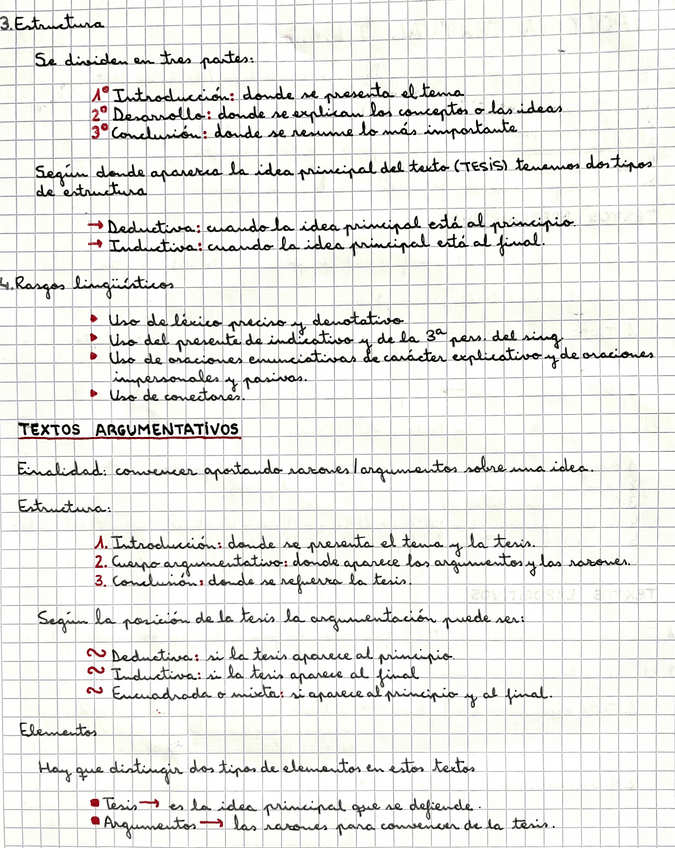 3. Estructura
Se dividen en tres partes:
1º Introducción: donde se presenta el tema
2º Desarrollo: donde se explican los conceptos o las ideas
3º Conclusión: donde se resume lo más importante
Según donde aparezca la idea principal del texto (TESIS) tenemos dos tipos
de estructura
→ Deductiva: cuando la idea principal está al principio.
→ Inductiva: cuando la idea principal está al final.
4. Rasgos lingüísticos
▸ Uso de léxico preciso y denotativo
▸ Uso del presente de indicativo y de la 3ª pers. del sing
▸ Uso de oraciones enunciativas de carácter explicativo y de oraciones
impersonales y pasivas.
▸ Uso de conectores.
TEXTOS ARGUMENTATIVOS
Finalidad: convencer aportando razones/argumentos sobre una idea.
Estructura:
1. Introducción: donde se presenta el tema y la tesis.
2. Cuerpo argumentativo: donde aparece los argumentos y las razones.
3. Conclusión: donde se refuerza la tesis.
Según la posición de la tesis la argumentación puede ser:
~ Deductiva: si la tesis aparece al principio.
~ Inductiva: si la tesis aparece al final
~ Encuadrada o mixta: si aparece al principio y al final.
Elementos
Hay que distingir dos tipos de elementos en estos textos
▪ Tesis → es la idea principal que se defiende.
• Argumentos → las razones para convencer de la tesis.